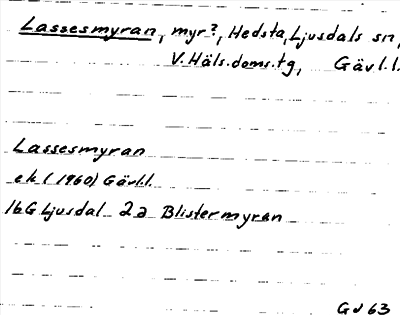 Lassesmyran, myr?, Hedsta, Ljusdals sn,
V. Häls. doms. tg, Gävl.l.
Lassesmyran
ek (1960) Gävl.l.
16G Ljusdal 2a Blistermyran
Gd 63